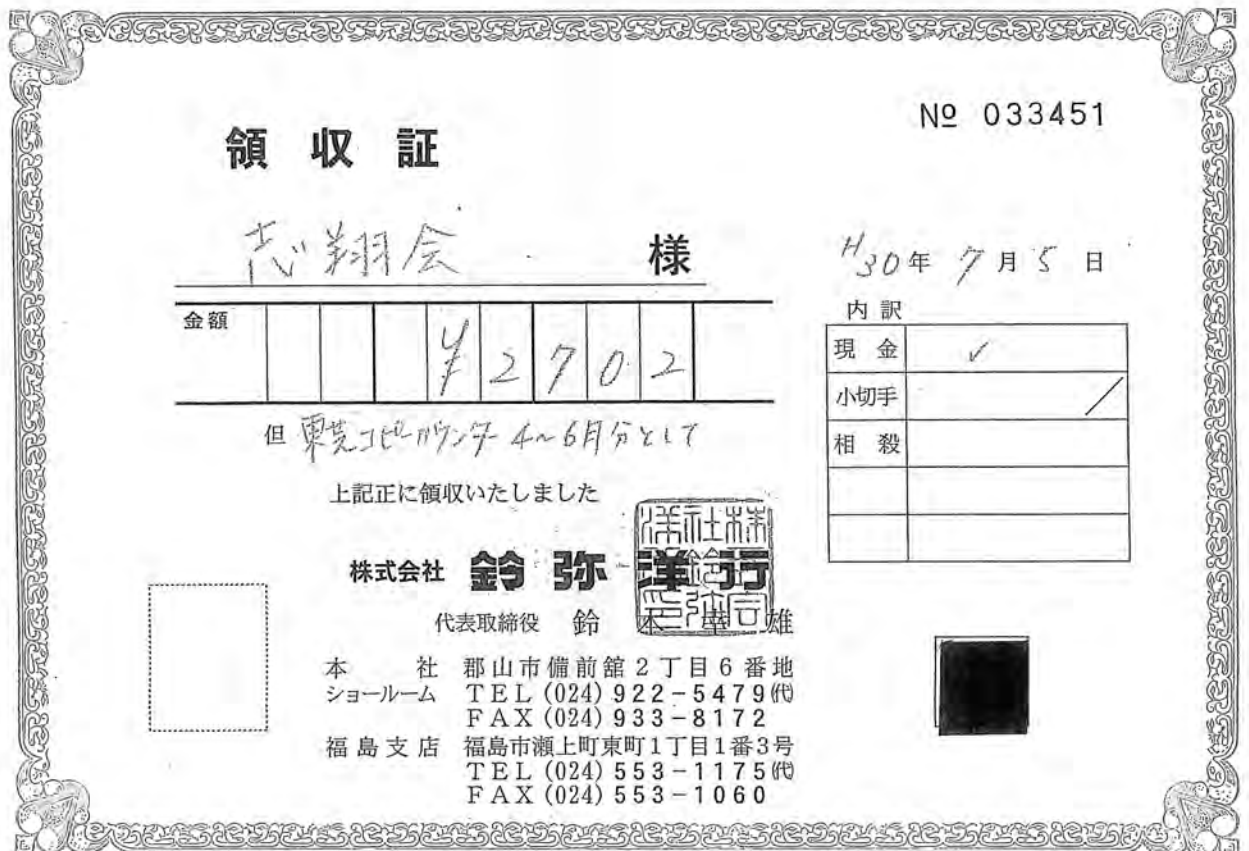 № 033451
領収証
志翔会 様
H30年 7月5日
金額 ¥2702
内訳
現金 ✓
小切手
相殺
但 東芝コピーカウンター 4~6月分として
上記正に領収いたしました
株式会社 鈴弥洋行
代表取締役 鈴木 雄
本社 郡山市備前舘2丁目6番地
ショールーム TEL (024) 922-5479(代)
FAX (024) 933-8172
福島支店 福島市瀬上町東町1丁目1番3号
TEL (024) 553-1175(代)
FAX (024) 553-1060